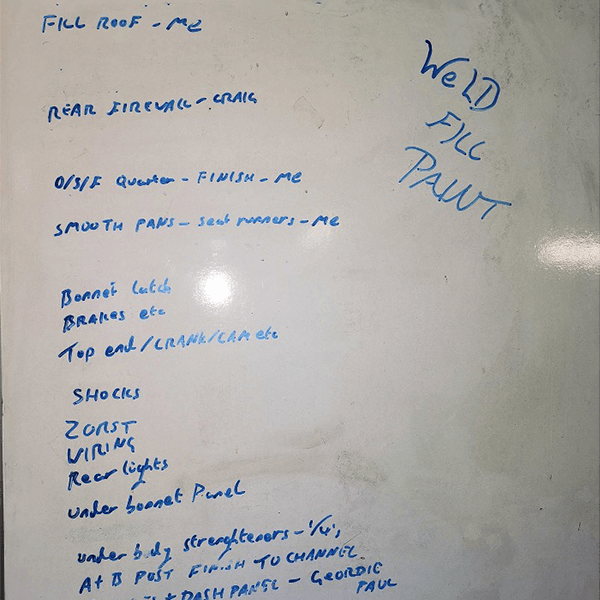 FILL ROOF - ME
REAR FIREWALL - CRAIG
O/S/F Quarter - FINISH - ME
SMOOTH PANS - seat runners - ME
Bonnet Latch
BRAKES etc
Top end / CRANK/CAM etc
SHOCKS
ZORST
WIRING
Rear lights
under bonnet Panel
under body strenghteners - 1/4's
A + B POST FINISH TO CHANNEL
+ DASH PANEL - GEORDIE
PAUL
WeLD
FILL
PAINT